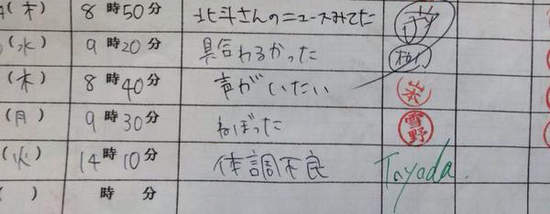 (木) 8時50分 北斗さんのニュースみてた
(水) 9時20分 具合わるかった
(木) 8時40分 声がいたい
(月) 9時30分 ねぼった 雪野
(火) 14時10分 体調不良 Toyoda
( ) 時 分